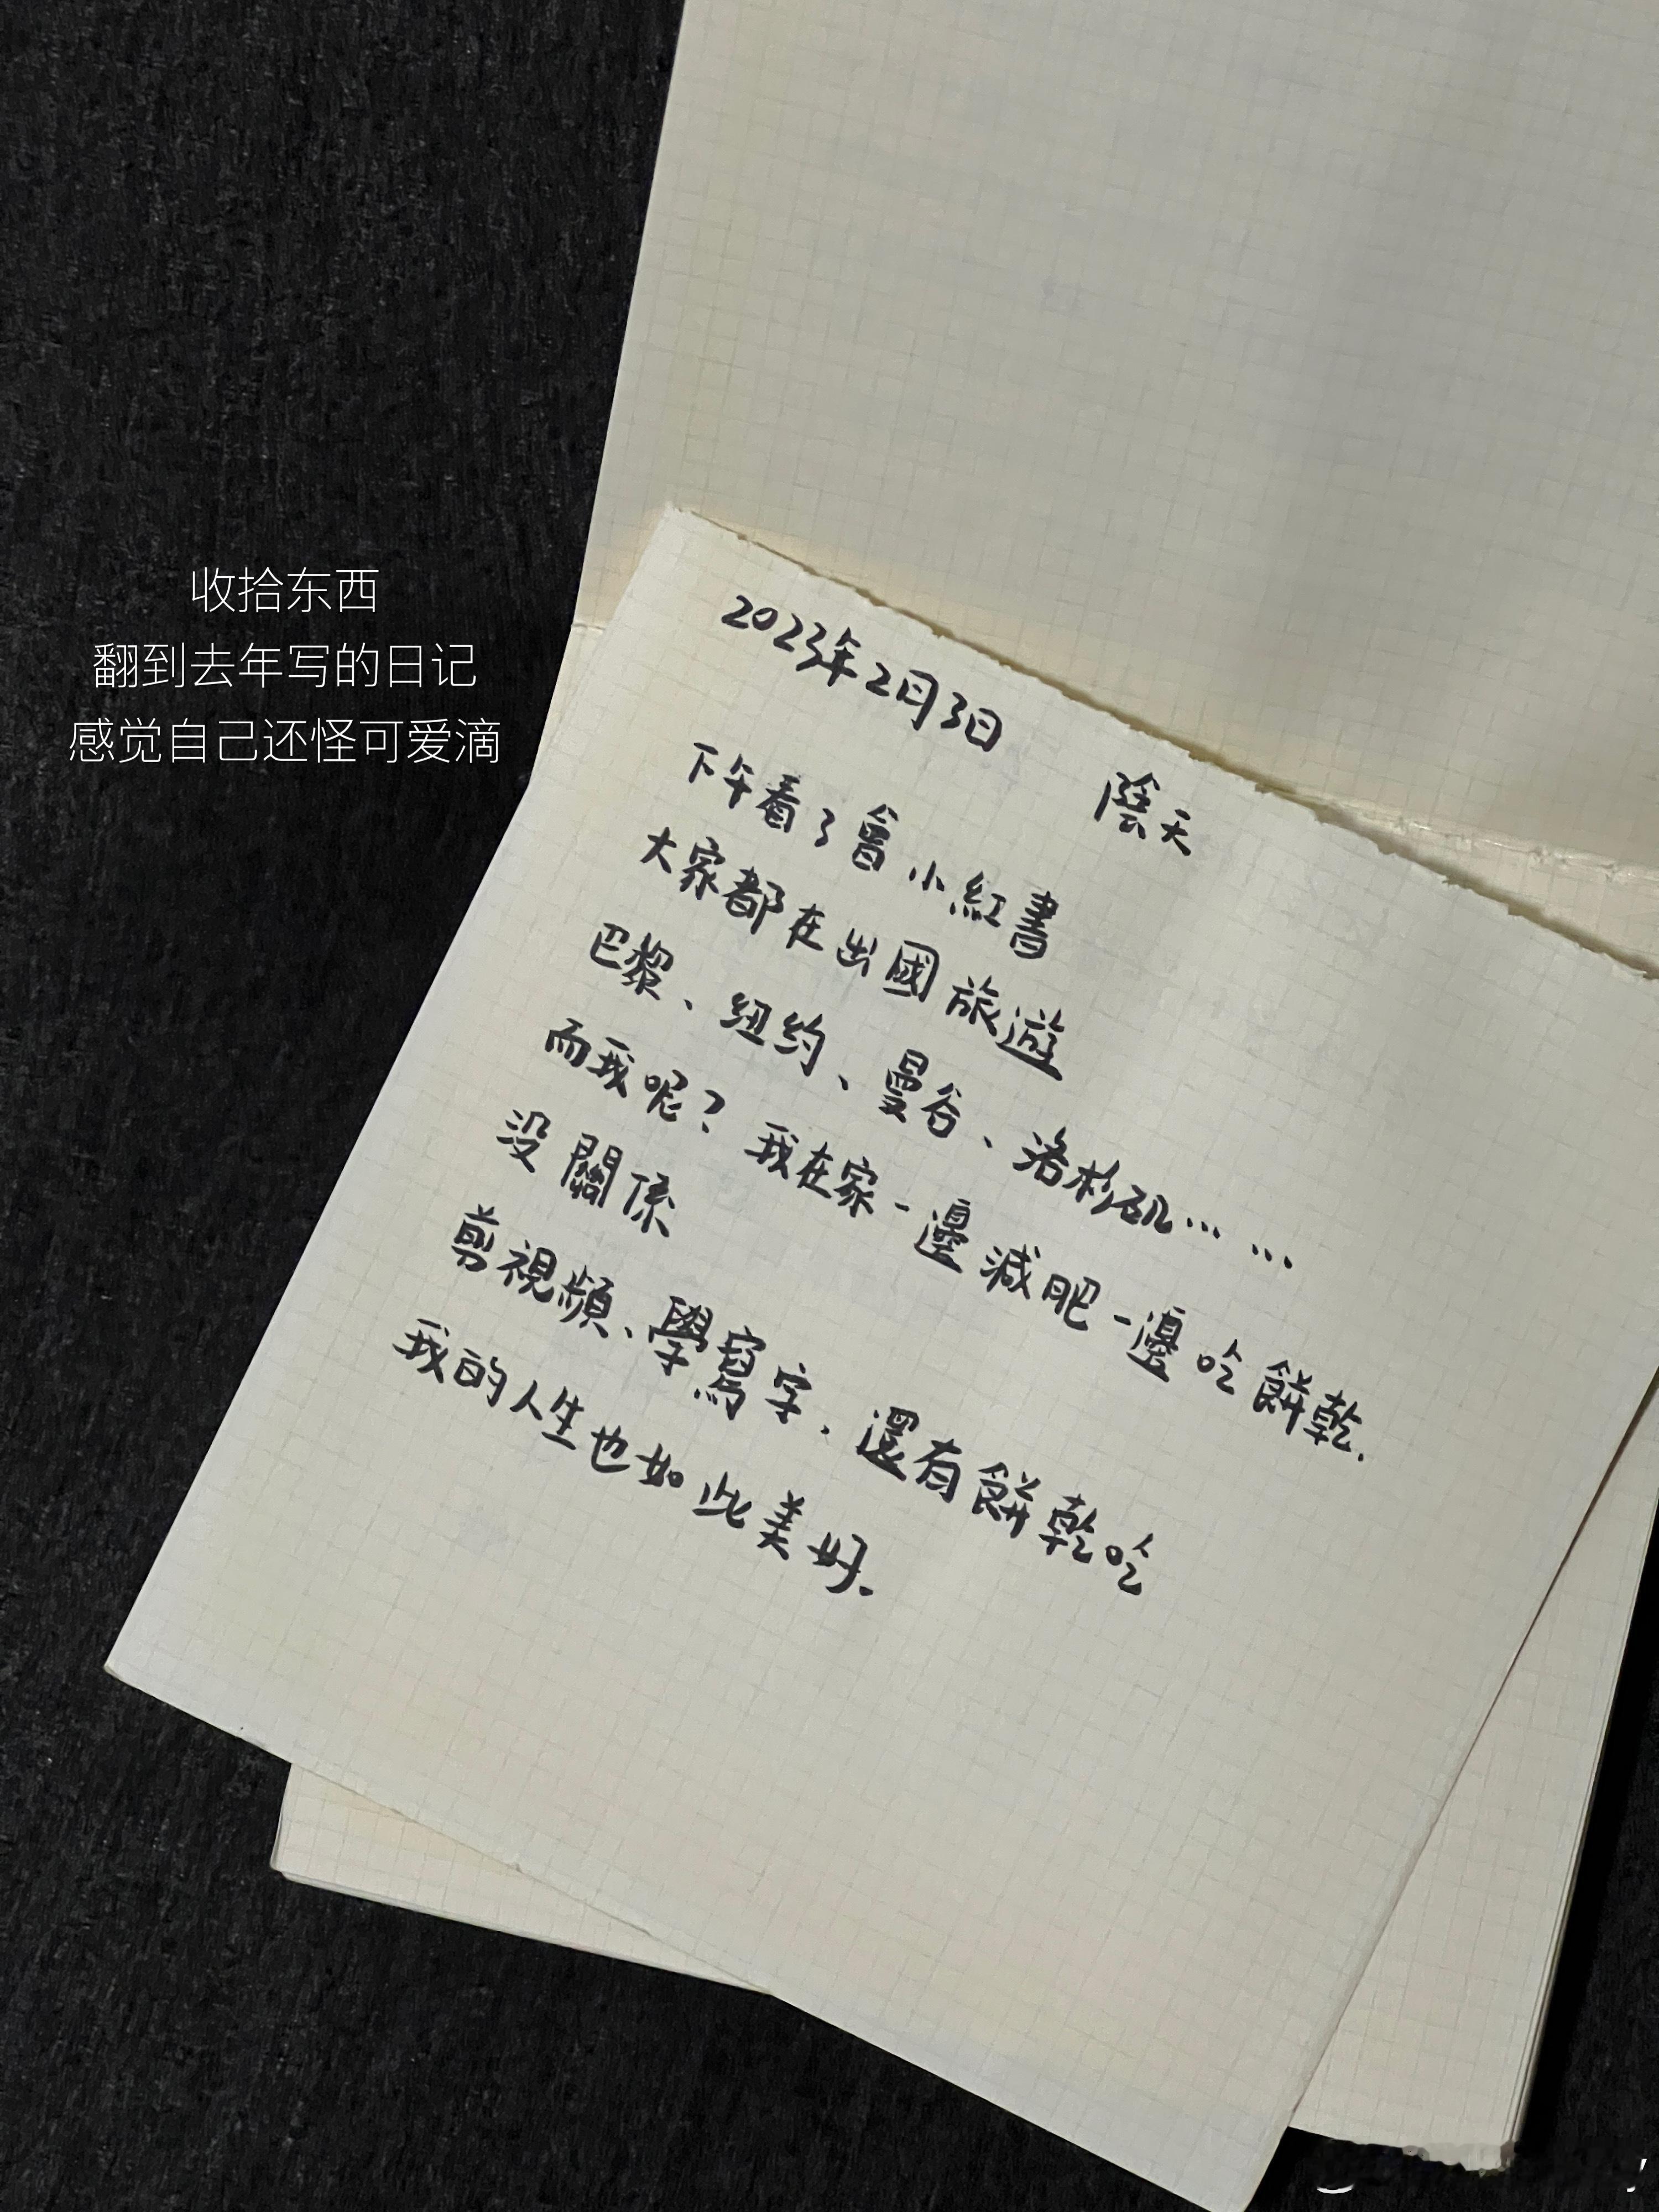 收拾东西
翻到去年写的日记
感觉自己还怪可爱滴
2023年2月3日 陰天
下午看了會小紅書
大家都在出國旅遊
巴黎、纽约、曼谷、洛杉矶……
而我呢？我在家一邊減肥一邊吃餅乾.
没關係
剪視頻、學寫字、還有餅乾吃
我的人生也如此美好.